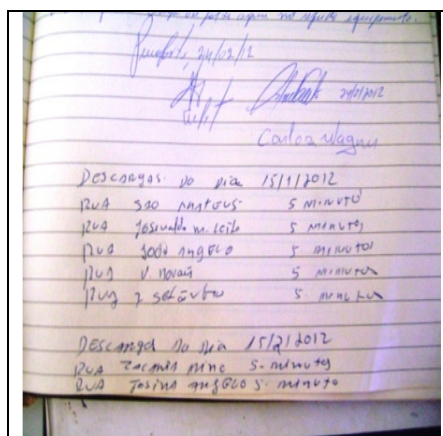 Penaforte, 24/02/12
24/02/2012
Carlos Wagner
Descargas do dia 15/1/2012
Rua São Mateus 5 minuto
Rua Josivaldo m. Leite 5 minutos
Rua João Angelo 5 minutos
Rua V. Novais 5 minutos
Rua 7 setembro 5 minutos
Descarga do dia 15/2/2012
Rua 5-minutos
Rua Josina Angelo 5-minuto